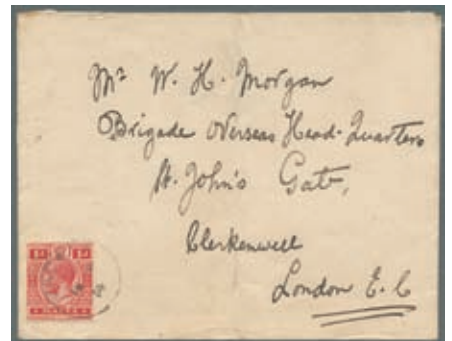 Mr W. H. Morgan
Brigade Overseas Head-Quarters
St. John's Gate,
Clerkenwell
London E.C
1d 1d
MALTA